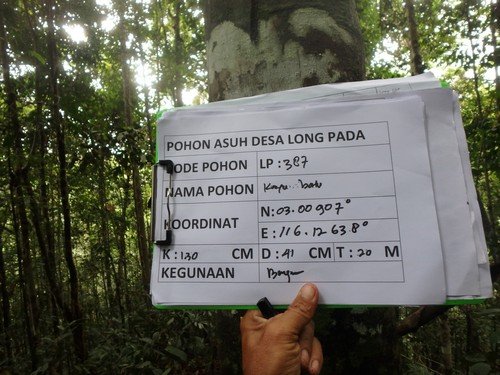 POHON ASUH DESA LONG PADA
KODE POHON LP : 387
NAMA POHON Kayu batu
KOORDINAT N : 03.00907°
E : 116.12638°
K : 130 CM D : 41 CM T : 20 M
KEGUNAAN